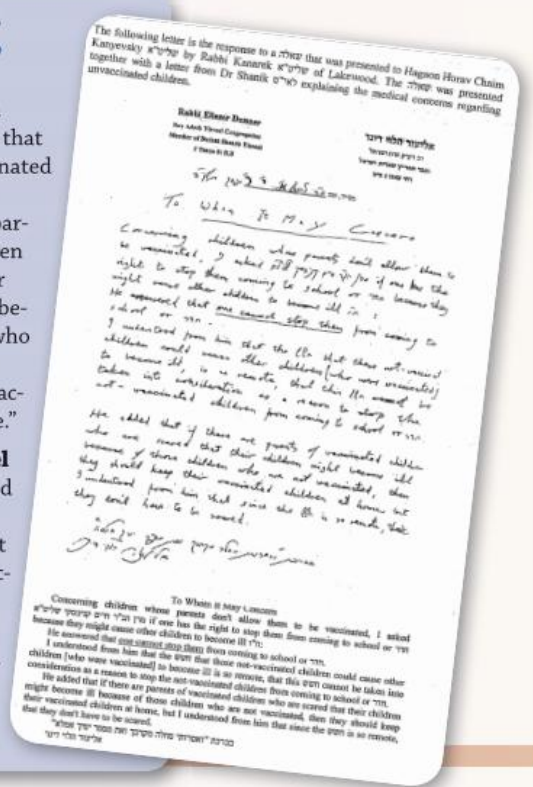 that
nated
par-
en
r
be-
who
ac-
e."
l
d
t
t-
The following letter is the response to a שאלה that was presented to Hagaon Horav Chaim
Kanyevsky שליט"א by Rabbi Kanarek שליט"א of Lakewood. The שאלה was presented
together with a letter from Dr Shanik לאוי"ט explaining the medical concerns regarding
unvaccinated children.
Rabbi Eliezer Dunner
Rav Adath Yisroel Congregation
Member of Beisdin Shearis Yisroel
אליעזר הלוי דינר
To Whom It May Concern
Concerning children whose parents don't allow them to
be vaccinated, I asked מרן if one has the
right to stop them coming to school or חדר because they
might cause other children to become ill
He answered that one cannot stop them from coming to
school or חדר.
I understood from him that the חשש that these not-vaccinated
children could cause other children [who were vaccinated]
to become ill, is so remote, that this חשש cannot be
taken into consideration as a reason to stop the
not-vaccinated children from coming to school or חדר.
He added that if there are parents of vaccinated children
who are scared that their children might become ill
because of those children who are not vaccinated, then
they should keep their vaccinated children at home but
I understood from him that since the חשש is so remote, that
they don't have to be scared.
To Whom It May Concern
Concerning children whose parents don't allow them to be vaccinated, I asked
מרן הגר"ח קניבסקי שליט"א if one has the right to stop them from coming to school or חדר
because they might cause other children to become ill ח"ו.
He answered that one cannot stop them from coming to school or חדר.
I understood from him that the חשש that those not-vaccinated children could cause other
children [who were vaccinated] to become ill is so remote, that this חשש cannot be taken into
consideration as a reason to stop the not-vaccinated children from coming to school or חדר.
He added that if there are parents of vaccinated children who are scared that their children
might become ill because of those children who are not vaccinated, then they should keep
their vaccinated children at home, but I understood from him that since the חשש is so remote,
that they don't have to be scared.
בברכת "והסרותי מחלה מקרבך ואת מספר ימיך אמלא"
אליעזר הלוי דינר